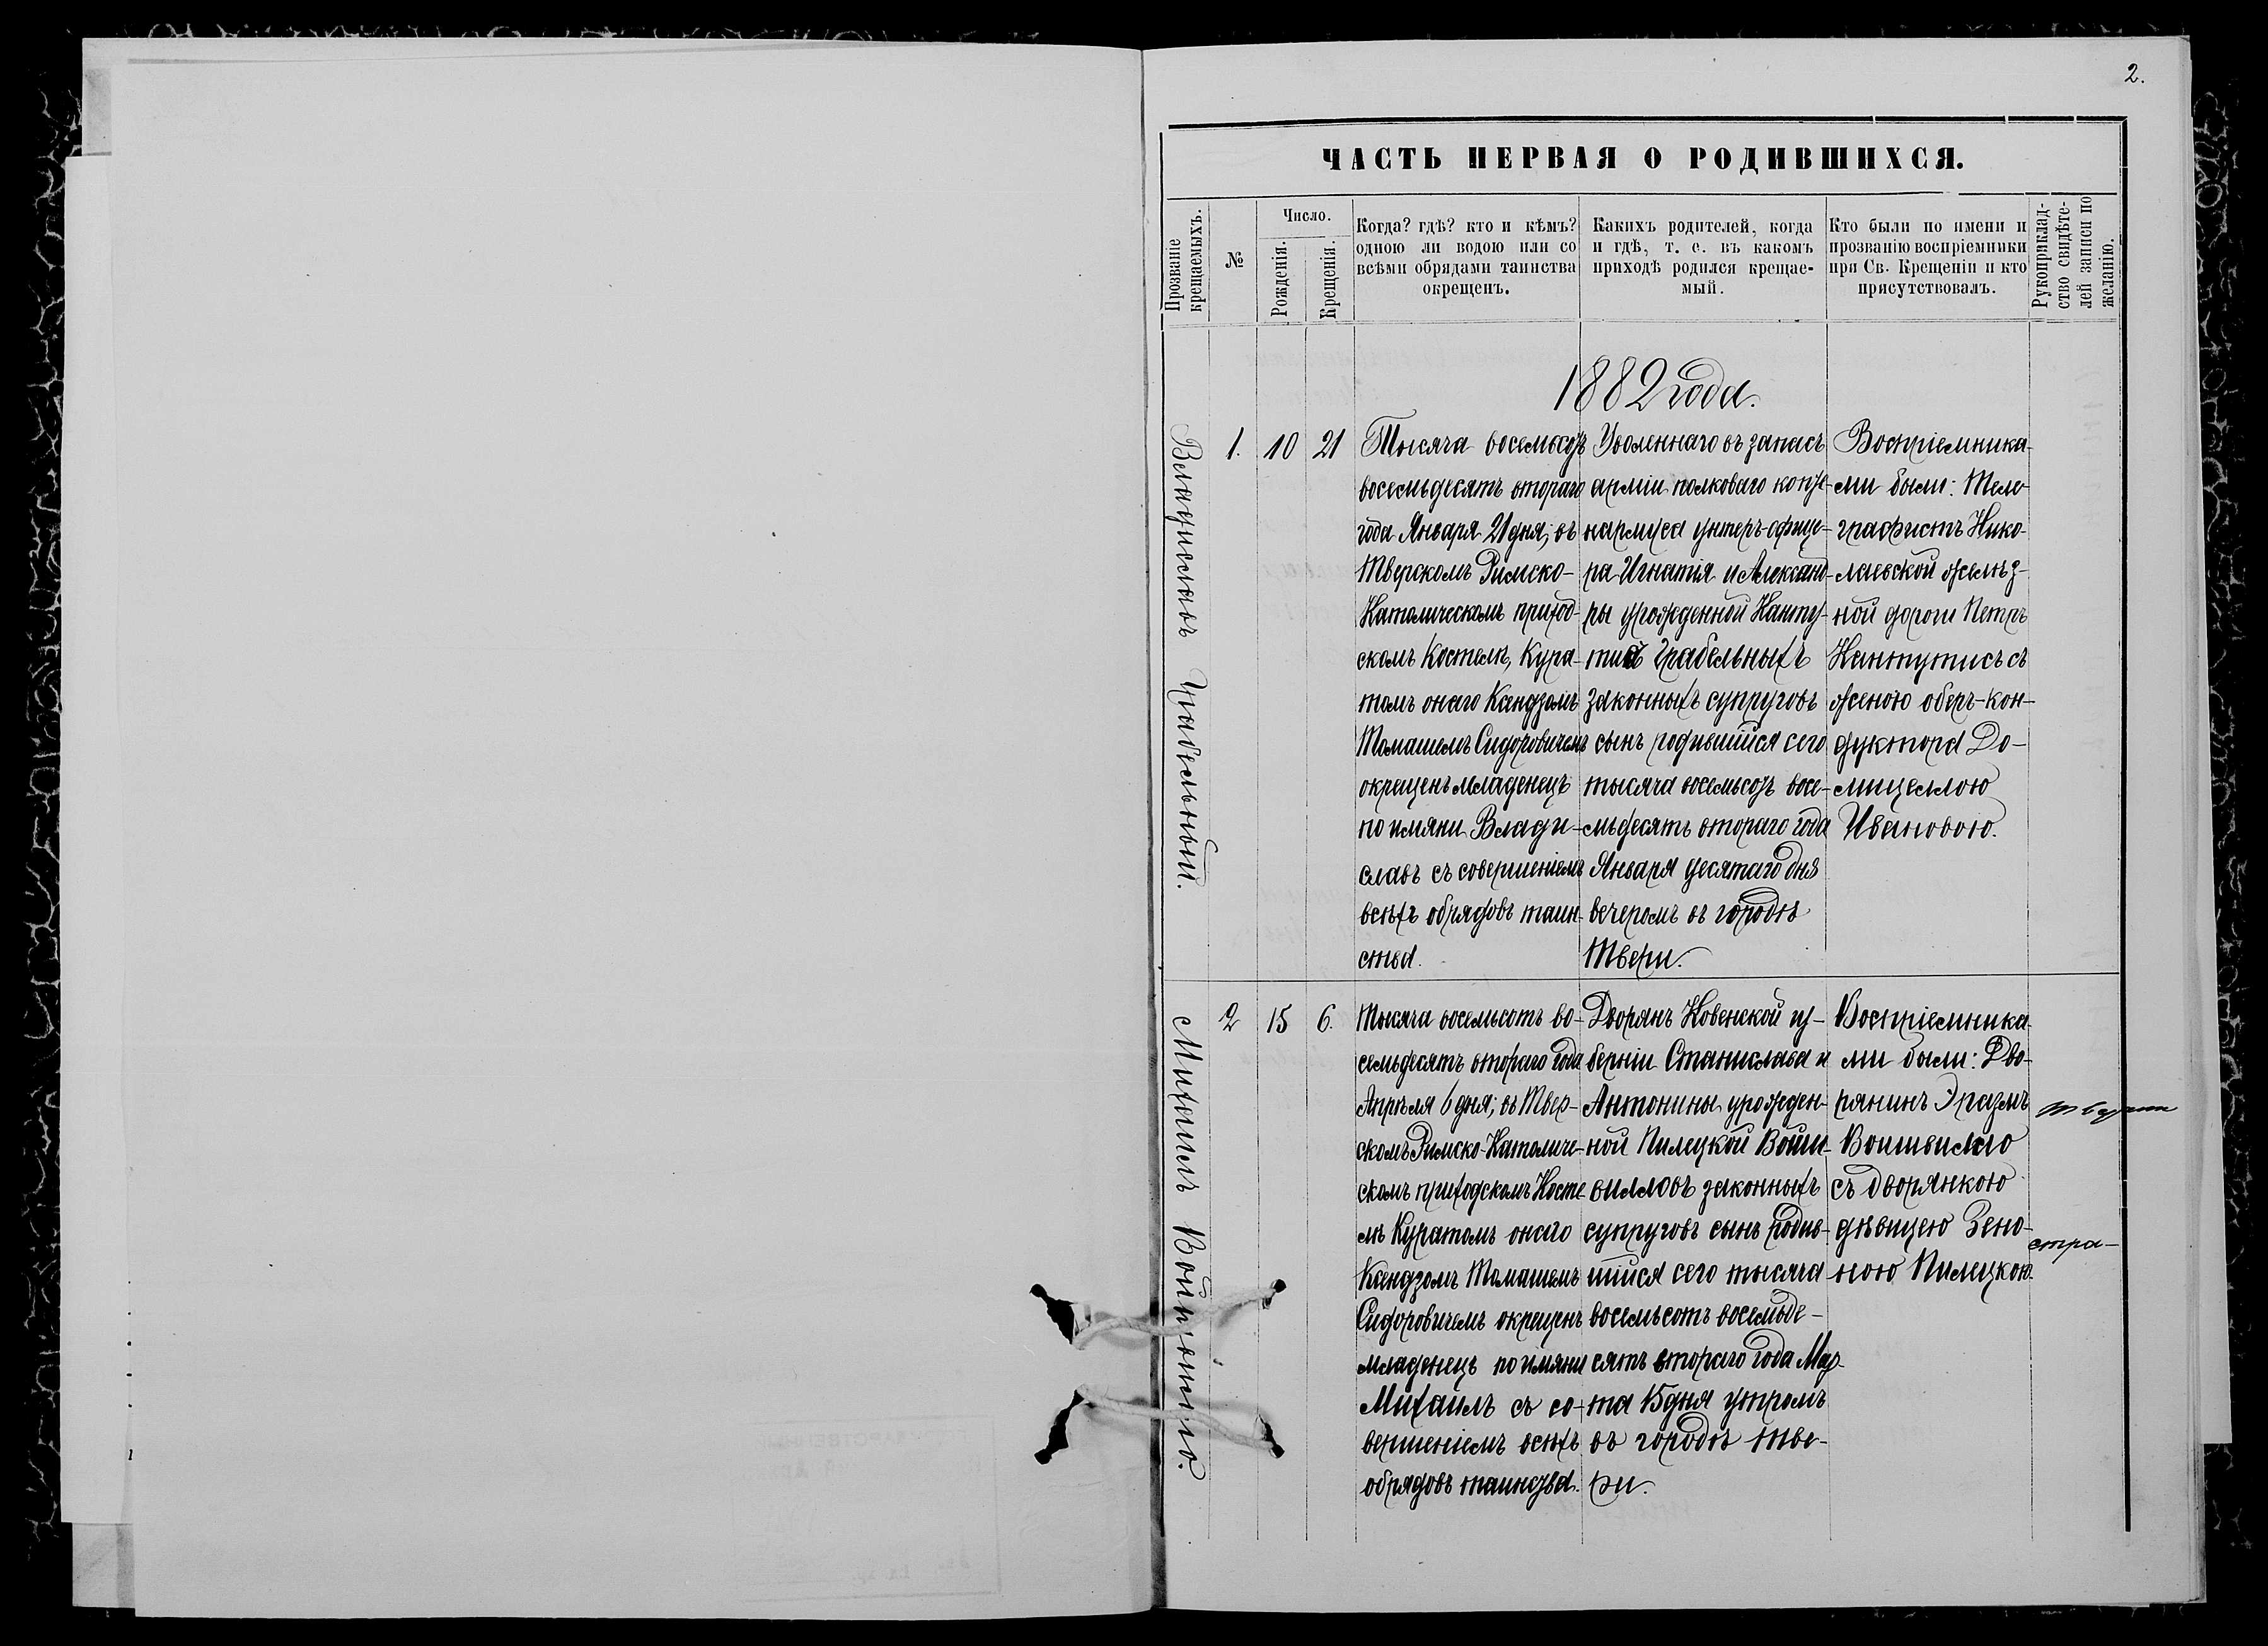 2.
ЧАСТЬ ПЕРВАЯ О РОДИВШИХСЯ.
Прозваніе крещаемыхъ.
№
Число.
Рожденія.
Крещенія.
Когда? гдѣ? кто и кѣмъ?
одною ли водою или со
всѣми обрядами таинства
окрещенъ.
Какихъ родителей, когда
и гдѣ, т. е. въ какомъ
приходѣ родился крещае-
мый.
Кто были по имени и
прозванію воспріемники
при Св. Крещеніи и кто
присутствовалъ.
Рукоприклад-
ство свидѣте-
лей записи по
желанію.
1882 года.
Владиславъ Грабельный.
1.
10
21
Тысяча восемьсотъ
восемьдесятъ втораго
года Января 21 дня, въ
Тверскомъ Римско-
Католическомъ приход-
скомъ Костелѣ, Кура-
томъ онаго Ксендзомъ
Томашемъ Сидоровичемъ
окрещенъ младенецъ
по имяни Влади-
славъ съ совершеніемъ
всѣхъ обрядовъ таин-
ства.
Уволеннаго въ запасъ
арміи полковаго копте-
нармуса унтеръ-офице-
ра Игнатія и Александ-
ры урожденной Канту-
тисъ Грабельныхъ
законныхъ супруговъ
сынъ родившійся сего
тысяча восемьсотъ восе-
мьдесятъ втораго года
Января десятаго дня
вечеромъ въ городѣ
Твери.
Воспріемника-
ми были: Теле-
графистъ Нико-
лаевской желѣз-
ной дороги Петръ
Кантутисъ съ
женою оберъ-кон-
дуктора До-
мицеллою
Ивановою.
Михаилъ Войшвилло.
2
15
6.
Тысяча восемьсотъ во-
семьдесятъ втораго года
Апрѣля 6 дня; въ Твер-
скомъ Римско-Католиче-
скомъ приходскомъ Косте-
лѣ Куратомъ онаго
Ксендзомъ Томашемъ
Сидоровичемъ окрещенъ
младенецъ по имяни
Михаилъ съ со-
вершеніемъ всѣхъ
обрядовъ таинства.
Дворянъ Ковенской гу-
берніи Станислава и
Антонины урожден-
ной Пилецкой Войш-
вилловъ законныхъ
супруговъ сынъ родив-
шійся сего тысяча
восемьсотъ восемьде-
сятъ втораго года Мар-
та 15 дня утромъ
въ городѣ Тве-
ри.
Воспріемника-
ми были: Дво-
рянинъ Эразмъ
Воишвилло
съ дворянкою
дѣвицею Зено-
ною Пилецкою.
стра-